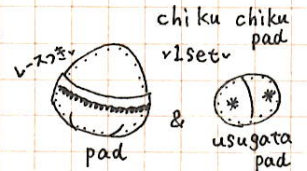 chiku chiku
pad
1set
レースつき
&
pad
usugata
pad